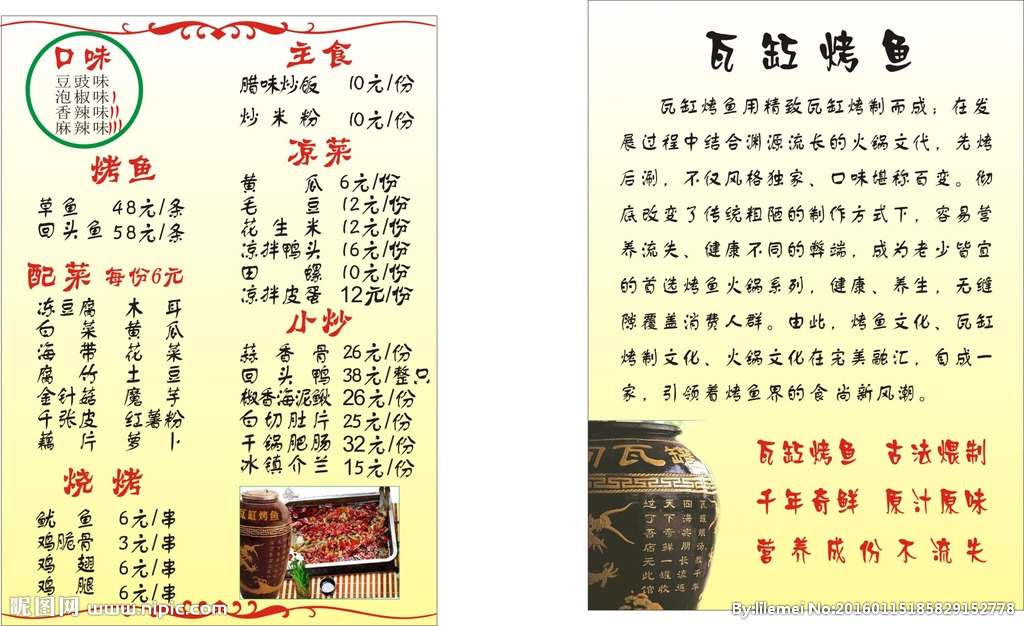 口味
豆豉味
泡椒味
香辣味
麻辣味
烤鱼
草鱼 48元/条
回头鱼 58元/条
配菜 每份6元
冻豆腐 木耳
白菜 黄瓜
海带 花菜
腐竹 土豆
金针菇 魔芋
千张皮 红薯粉
藕片 萝卜
烧烤
鱿鱼 6元/串
鸡脆骨 3元/串
鸡翅 6元/串
鸡腿 6元/串
主食
腊味炒饭 10元/份
炒米粉 10元/份
凉菜
黄瓜 6元/份
毛豆 12元/份
花生米 12元/份
凉拌鸭头 16元/份
田螺 10元/份
凉拌皮蛋 12元/份
小炒
蒜香骨 26元/份
回头鸭 38元/整只
椒香海泥鳅 26元/份
白切肚片 25元/份
干锅肥肠 32元/份
冰镇介兰 15元/份
瓦缸烤鱼
昵图网 www.nipic.com
瓦缸烤鱼
瓦缸烤鱼用精致瓦缸烤制而成；在发
展过程中结合渊源流长的火锅文代，先烤
后涮，不仅风格独家、口味堪称百变。彻
底改变了传统粗陋的制作方式下，容易营
养流失、健康不同的弊端，成为老少皆宜
的首选烤鱼火锅系列，健康、养生，无缝
隙覆盖消费人群。由此，烤鱼文化、瓦缸
烤制文化、火锅文化在完美融汇，自成一
家，引领着烤鱼界的食尚新风潮。
瓦缸烤鱼 古法煨制
千年奇鲜 原汁原味
营养成份不流失
瓦罐煨汤香千年
四海宾朋长流连
天下奇鲜一罐收
过了吾店无此馆
By:lilemei No:20160115185829152778